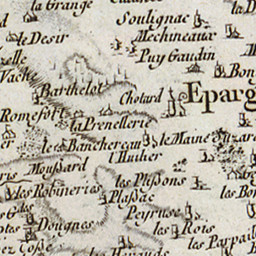 la Grange
Soulignac
le Desir
Mechineaux
Puy Gaudin
Vache
Bon
Barthelot
Chotard
Eparg
Romefort
la Prenellerie
le Maine
le Banchereau
l'Huilier
Moussard
les Robineries
les Plessons
Plassac
les Bo
Peyruse
Dougnes
les Rois
les Parpail
ez Cosse